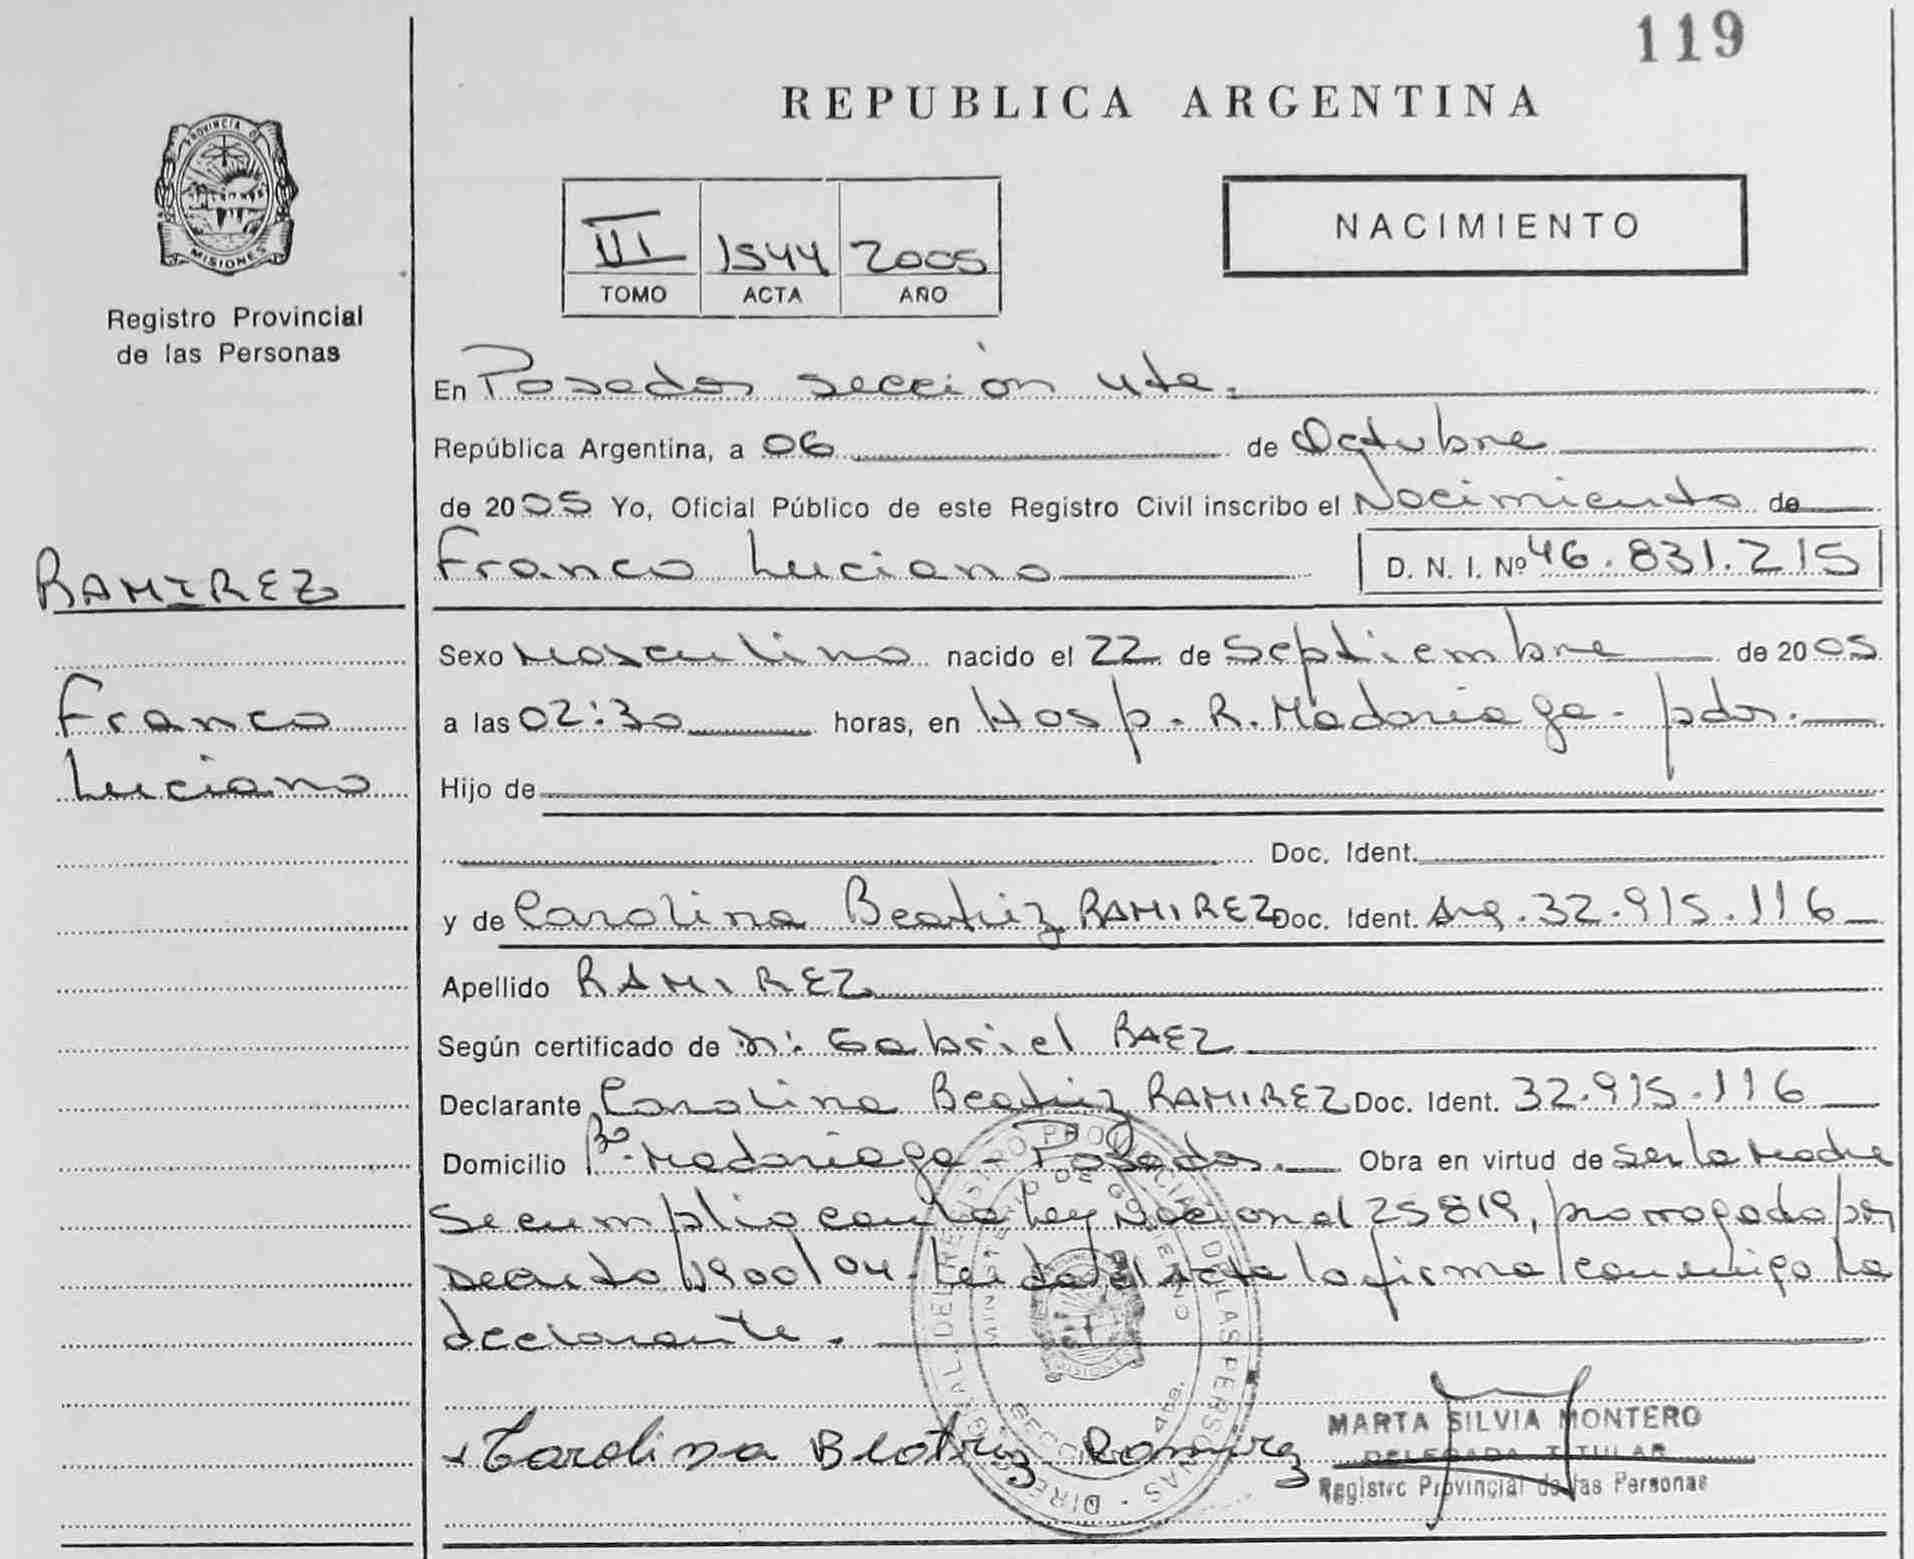 119
REPUBLICA ARGENTINA
PROVINCIA DE
MISIONES
Registro Provincial
de las Personas
III 1544 2005
TOMO ACTA AÑO
NACIMIENTO
En Posadas sección 4ta.
República Argentina, a 06 de Octubre
de 2005 Yo, Oficial Público de este Registro Civil inscribo el Nacimiento de
Franco Luciano D. N. I. Nº 46.831.215
RAMIREZ
Franco
Luciano
Sexo Masculino nacido el 22 de Septiembre de 2005
a las 02:30 horas, en Hosp. R. Madariaga - pdas.
Hijo de
Doc. Ident.
y de Carolina Beatriz RAMIREZ Doc. Ident. Arg. 32.915.116
Apellido RAMIREZ
Según certificado de Dr. Gabriel BAEZ
Declarante Carolina Beatriz RAMIREZ Doc. Ident. 32.915.116
Domicilio Bº Madariaga - Posadas. Obra en virtud de ser la Madre
se cumplio con la Ley Nacional 25819, prorrogado por
Decreto 1900/04. Leida el Acta la firma conmigo la
declarante.
Carolina Beatriz Ramirez
MARTA SILVIA MONTERO
DELEGADA TITULAR
Registro Provincial de las Personas
DIRECCION GENERAL DEL REGISTRO PROVINCIAL DE LAS PERSONAS
MINISTERIO DE GOBIERNO
SECCION 4ta.
MISIONES